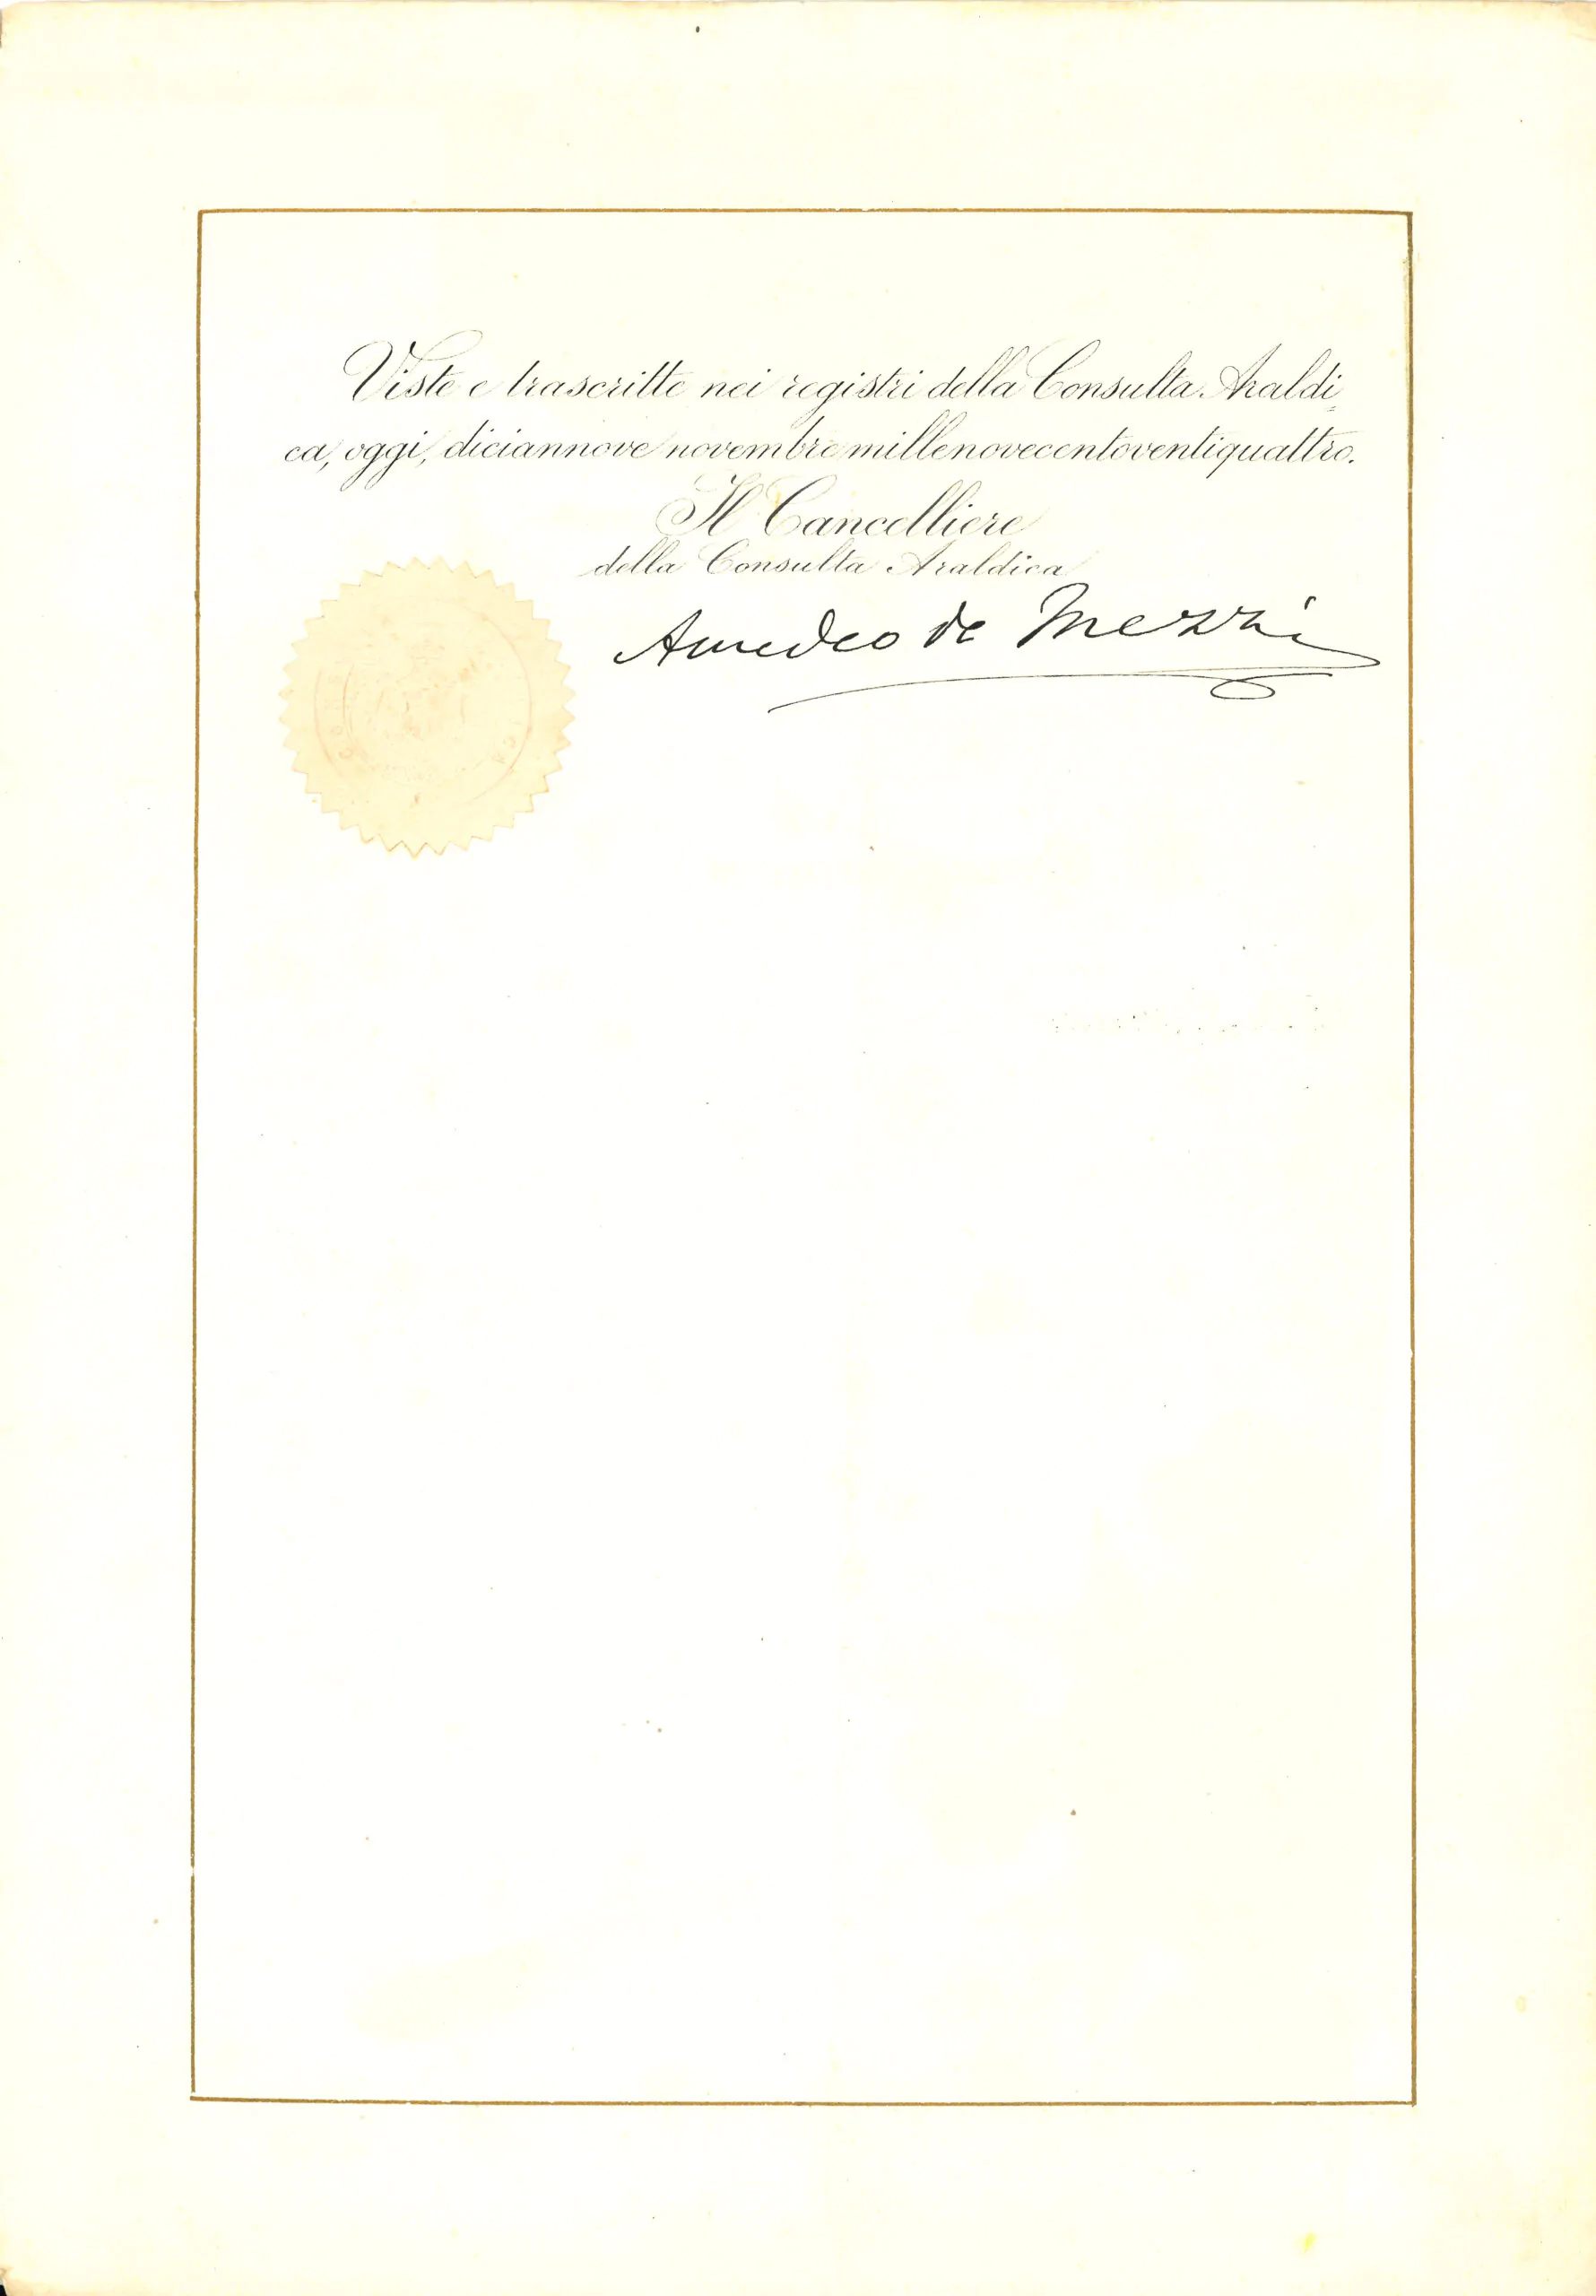 Viste e trascritte nei registri della Consulta Araldi-
ca, oggi, diciannove novembre millenovecentoventiquattro.
Il Cancelliere
della Consulta Araldica
Amedeo de